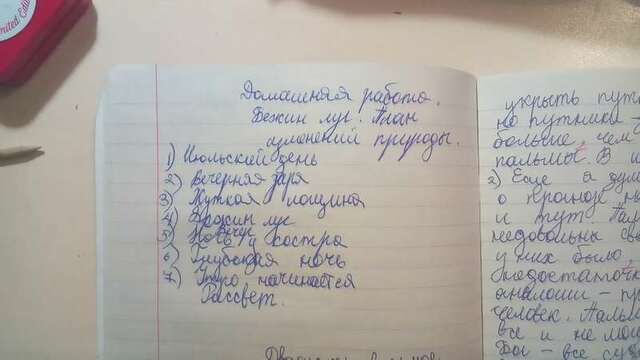 Limited Edit
Домашняя работа.
Бежин луг. План
изменений природы.
1) Июльский день
2) Вечерняя заря
3) Жуткая лощина
4) Бежин луг
5) Ночь у костра
6) Глубокая ночь
7) Утро начинается
Рассвет.
укрыть пут
но путники
больше, чем
пальмы. В и
2) Еще а дум
о проиоз на
и тут Паль
недовольны сво
у них было
недостаточ
аналоги – пр
человек. Пальм
все и не мо
Бог все слу